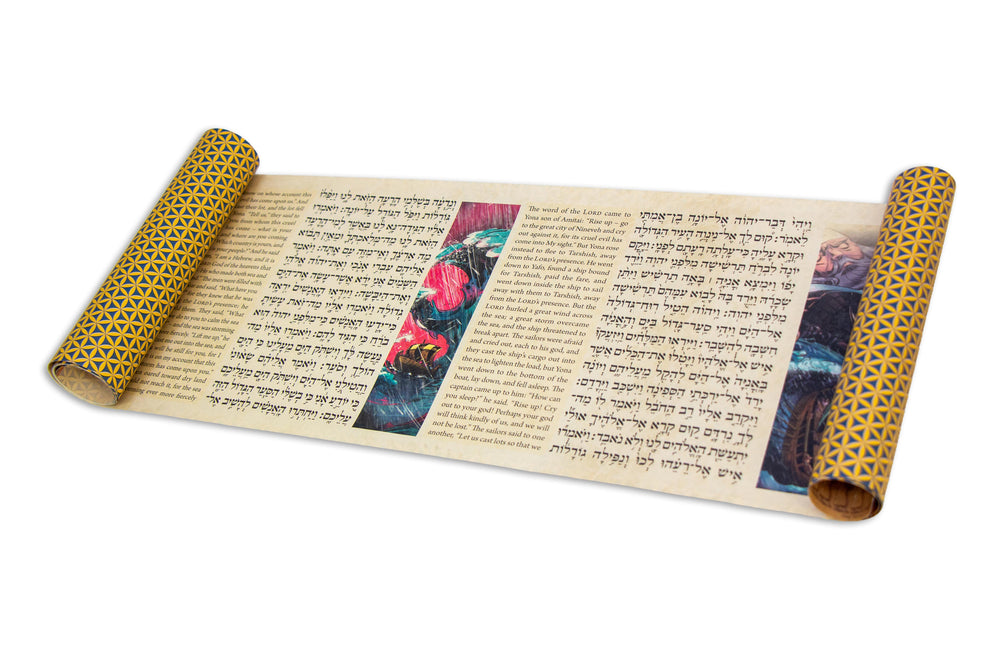 וַיְהִי דְּבַר־יְהוָה אֶל־יוֹנָה בֶן־אֲמִתַּי
לֵאמֹר: קוּם לֵךְ אֶל־נִינְוֵה הָעִיר הַגְּדוֹלָה
וּקְרָא עָלֶיהָ כִּי־עָלְתָה רָעָתָם לְפָנָי: וַיָּקָם
יוֹנָה לִבְרֹחַ תַּרְשִׁישָׁה מִלִּפְנֵי יְהוָה וַיֵּרֶד
יָפוֹ וַיִּמְצָא אֳנִיָּה ׀ בָּאָה תַרְשִׁישׁ וַיִּתֵּן
שְׂכָרָהּ וַיֵּרֶד בָּהּ לָבוֹא עִמָּהֶם תַּרְשִׁישָׁה
מִלִּפְנֵי יְהוָה: וַיהוָה הֵטִיל רוּחַ־גְּדוֹלָה
אֶל־הַיָּם וַיְהִי סַעַר־גָּדוֹל בַּיָּם וְהָאֳנִיָּה
חִשְּׁבָה לְהִשָּׁבֵר: וַיִּירְאוּ הַמַּלָּחִים וַיִּזְעֲקוּ
אִישׁ אֶל־אֱלֹהָיו וַיָּטִלוּ אֶת־הַכֵּלִים אֲשֶׁר
בָּאֳנִיָּה אֶל־הַיָּם לְהָקֵל מֵעֲלֵיהֶם וְיוֹנָה
יָרַד אֶל־יַרְכְּתֵי הַסְּפִינָה וַיִּשְׁכַּב וַיֵּרָדַם:
וַיִּקְרַב אֵלָיו רַב הַחֹבֵל וַיֹּאמֶר לוֹ מַה־
לְּךָ נִרְדָּם קוּם קְרָא אֶל־אֱלֹהֶיךָ אוּלַי
יִתְעַשֵּׁת הָאֱלֹהִים לָנוּ וְלֹא נֹאבֵד: וַיֹּאמְרוּ
אִישׁ אֶל־רֵעֵהוּ לְכוּ וְנַפִּילָה גוֹרָלוֹת
The word of the LORD came to
Yona son of Amitai: "Rise up – go
to the great city of Nineveh and cry
out against it, for its cruel evil has
come into My sight." But Yona rose
instead to flee to Tarshish, away
from the LORD's presence. He went
down to Yafo, found a ship bound
for Tarshish, paid the fare, and
went down inside the ship to sail
away with them to Tarshish, away
from the LORD's presence. But the
LORD hurled a great wind across
the sea; a great storm overcame
the sea, and the ship threatened to
break. The sailors were afraid
and cried out, each to his god, and
they cast the ship's cargo out into
the sea to lighten the load, but Yona
went down to the bottom of the
boat, lay down, and fell asleep. The
captain came up to him: "How can
you sleep?" he said. "Rise up! Cry
out to your god! Perhaps your god
will think kindly of us, and we will
not be lost." The sailors said to one
another, "Let us cast lots so that we
וְנֵדְעָה בְּשֶׁלְּמִי הָרָעָה הַזֹּאת לָנוּ וַיַּפִּלוּ
גּוֹרָלוֹת וַיִּפֹּל הַגּוֹרָל עַל־יוֹנָה: וַיֹּאמְרוּ
אֵלָיו הַגִּידָה־נָּא לָנוּ בַּאֲשֶׁר לְמִי־
הָרָעָה הַזֹּאת לָנוּ מַה־מְּלַאכְתְּךָ וּמֵאַיִן
תָּבוֹא מָה אַרְצֶךָ וְאֵי־מִזֶּה עַם אָתָּה: וַיֹּאמֶר
אֲלֵיהֶם עִבְרִי אָנֹכִי וְאֶת־יְהוָה אֱלֹהֵי
הַשָּׁמַיִם אֲנִי יָרֵא אֲשֶׁר־עָשָׂה אֶת־הַיָּם
וְאֶת־הַיַּבָּשָׁה: וַיִּירְאוּ הָאֲנָשִׁים יִרְאָה
גְדוֹלָה וַיֹּאמְרוּ אֵלָיו מַה־זֹּאת עָשִׂיתָ
כִּי־יָדְעוּ הָאֲנָשִׁים כִּי־מִלִּפְנֵי יְהוָה הוּא
בֹרֵחַ כִּי הִגִּיד לָהֶם: וַיֹּאמְרוּ אֵלָיו מַה־
נַּעֲשֶׂה לָּךְ וְיִשְׁתֹּק הַיָּם מֵעָלֵינוּ כִּי הַיָּם
הוֹלֵךְ וְסֹעֵר: וַיֹּאמֶר אֲלֵיהֶם שָׂאוּנִי
וַהֲטִילֻנִי אֶל־הַיָּם וְיִשְׁתֹּק הַיָּם מֵעֲלֵיכֶם
כִּי יוֹדֵעַ אָנִי כִּי בְשֶׁלִּי הַסַּעַר הַגָּדוֹל הַזֶּה
עֲלֵיכֶם: וַיַּחְתְּרוּ הָאֲנָשִׁים לְהָשִׁיב אֶל־
on whose account this
has come upon us." And
their lot, and the lot fell
"Tell us," they said to
whom this cruel
come – what is your
where are you coming
country is yours, and
your people?" And he said
a Hebrew, and it is
God of the heavens that
who made both sea and
men were filled with
"What have you
they knew that he was
the LORD's presence; he
them. They said, "What
to you to calm the sea
and the sea was storming
fiercely. "Lift me up," he
me out into the sea, and
will be still for you, for I
on my account that this
has come upon you."
toward dry land
not reach it, for the
ever more fiercely